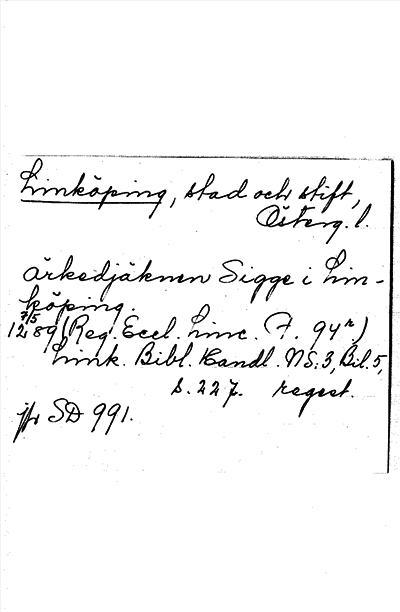 Linköping, stad och stift,
Österg. l.
ärkedjäknen Sigge i Lin-
köping.
7/5
1289 (Reg. Eccl. Linc. F. 94r)
Link. Bibl. Handl. NS. 3, Bil. 5,
s. 227. regest.
jfr SD 991.